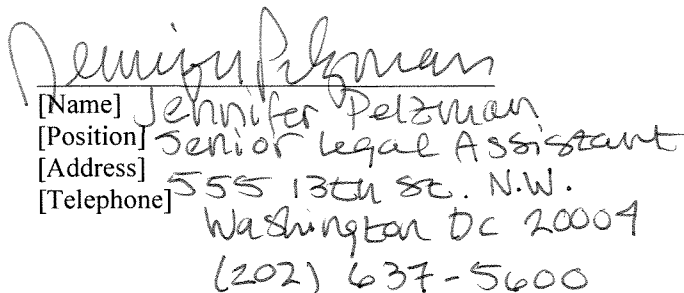 Jennifer Pelzman
[Name] Jennifer Pelzman
[Position] Senior Legal Assistant
[Address] 555 13th St. N.W.
[Telephone]
Washington DC 20004
(202) 637-5600